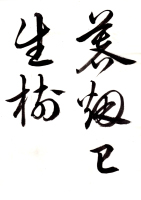 暮煙已
生樹